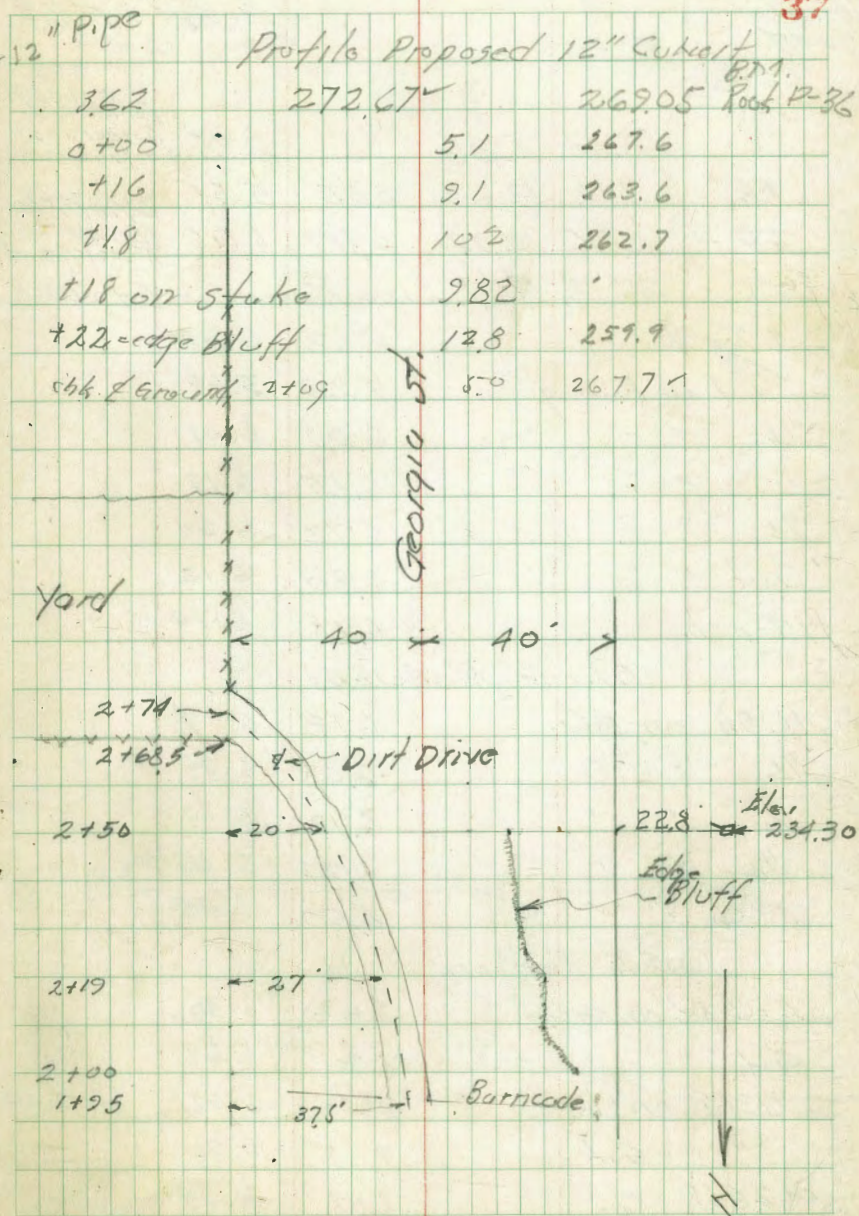 37
12" Pipe
Profile Proposed 12" Culvert
B.M.
3.62 272.67 ✓ 269.05 Book P-36
0+00 5.1 267.6
+16 9.1 263.6
+18 10.2 262.7
+18 on stake 9.82
+22 = edge Bluff 12.8 259.9
chk. ¢ Ground 2+09 5.0 267.7 ✓
Georgia St.
Yard
40 40'
2+74
2+68.5
¢ Dirt Drive
2+50 20 22.8 Elev. 234.30
Edge Bluff
2+19 27'
2+00
1+95 37.5' Barricade
N